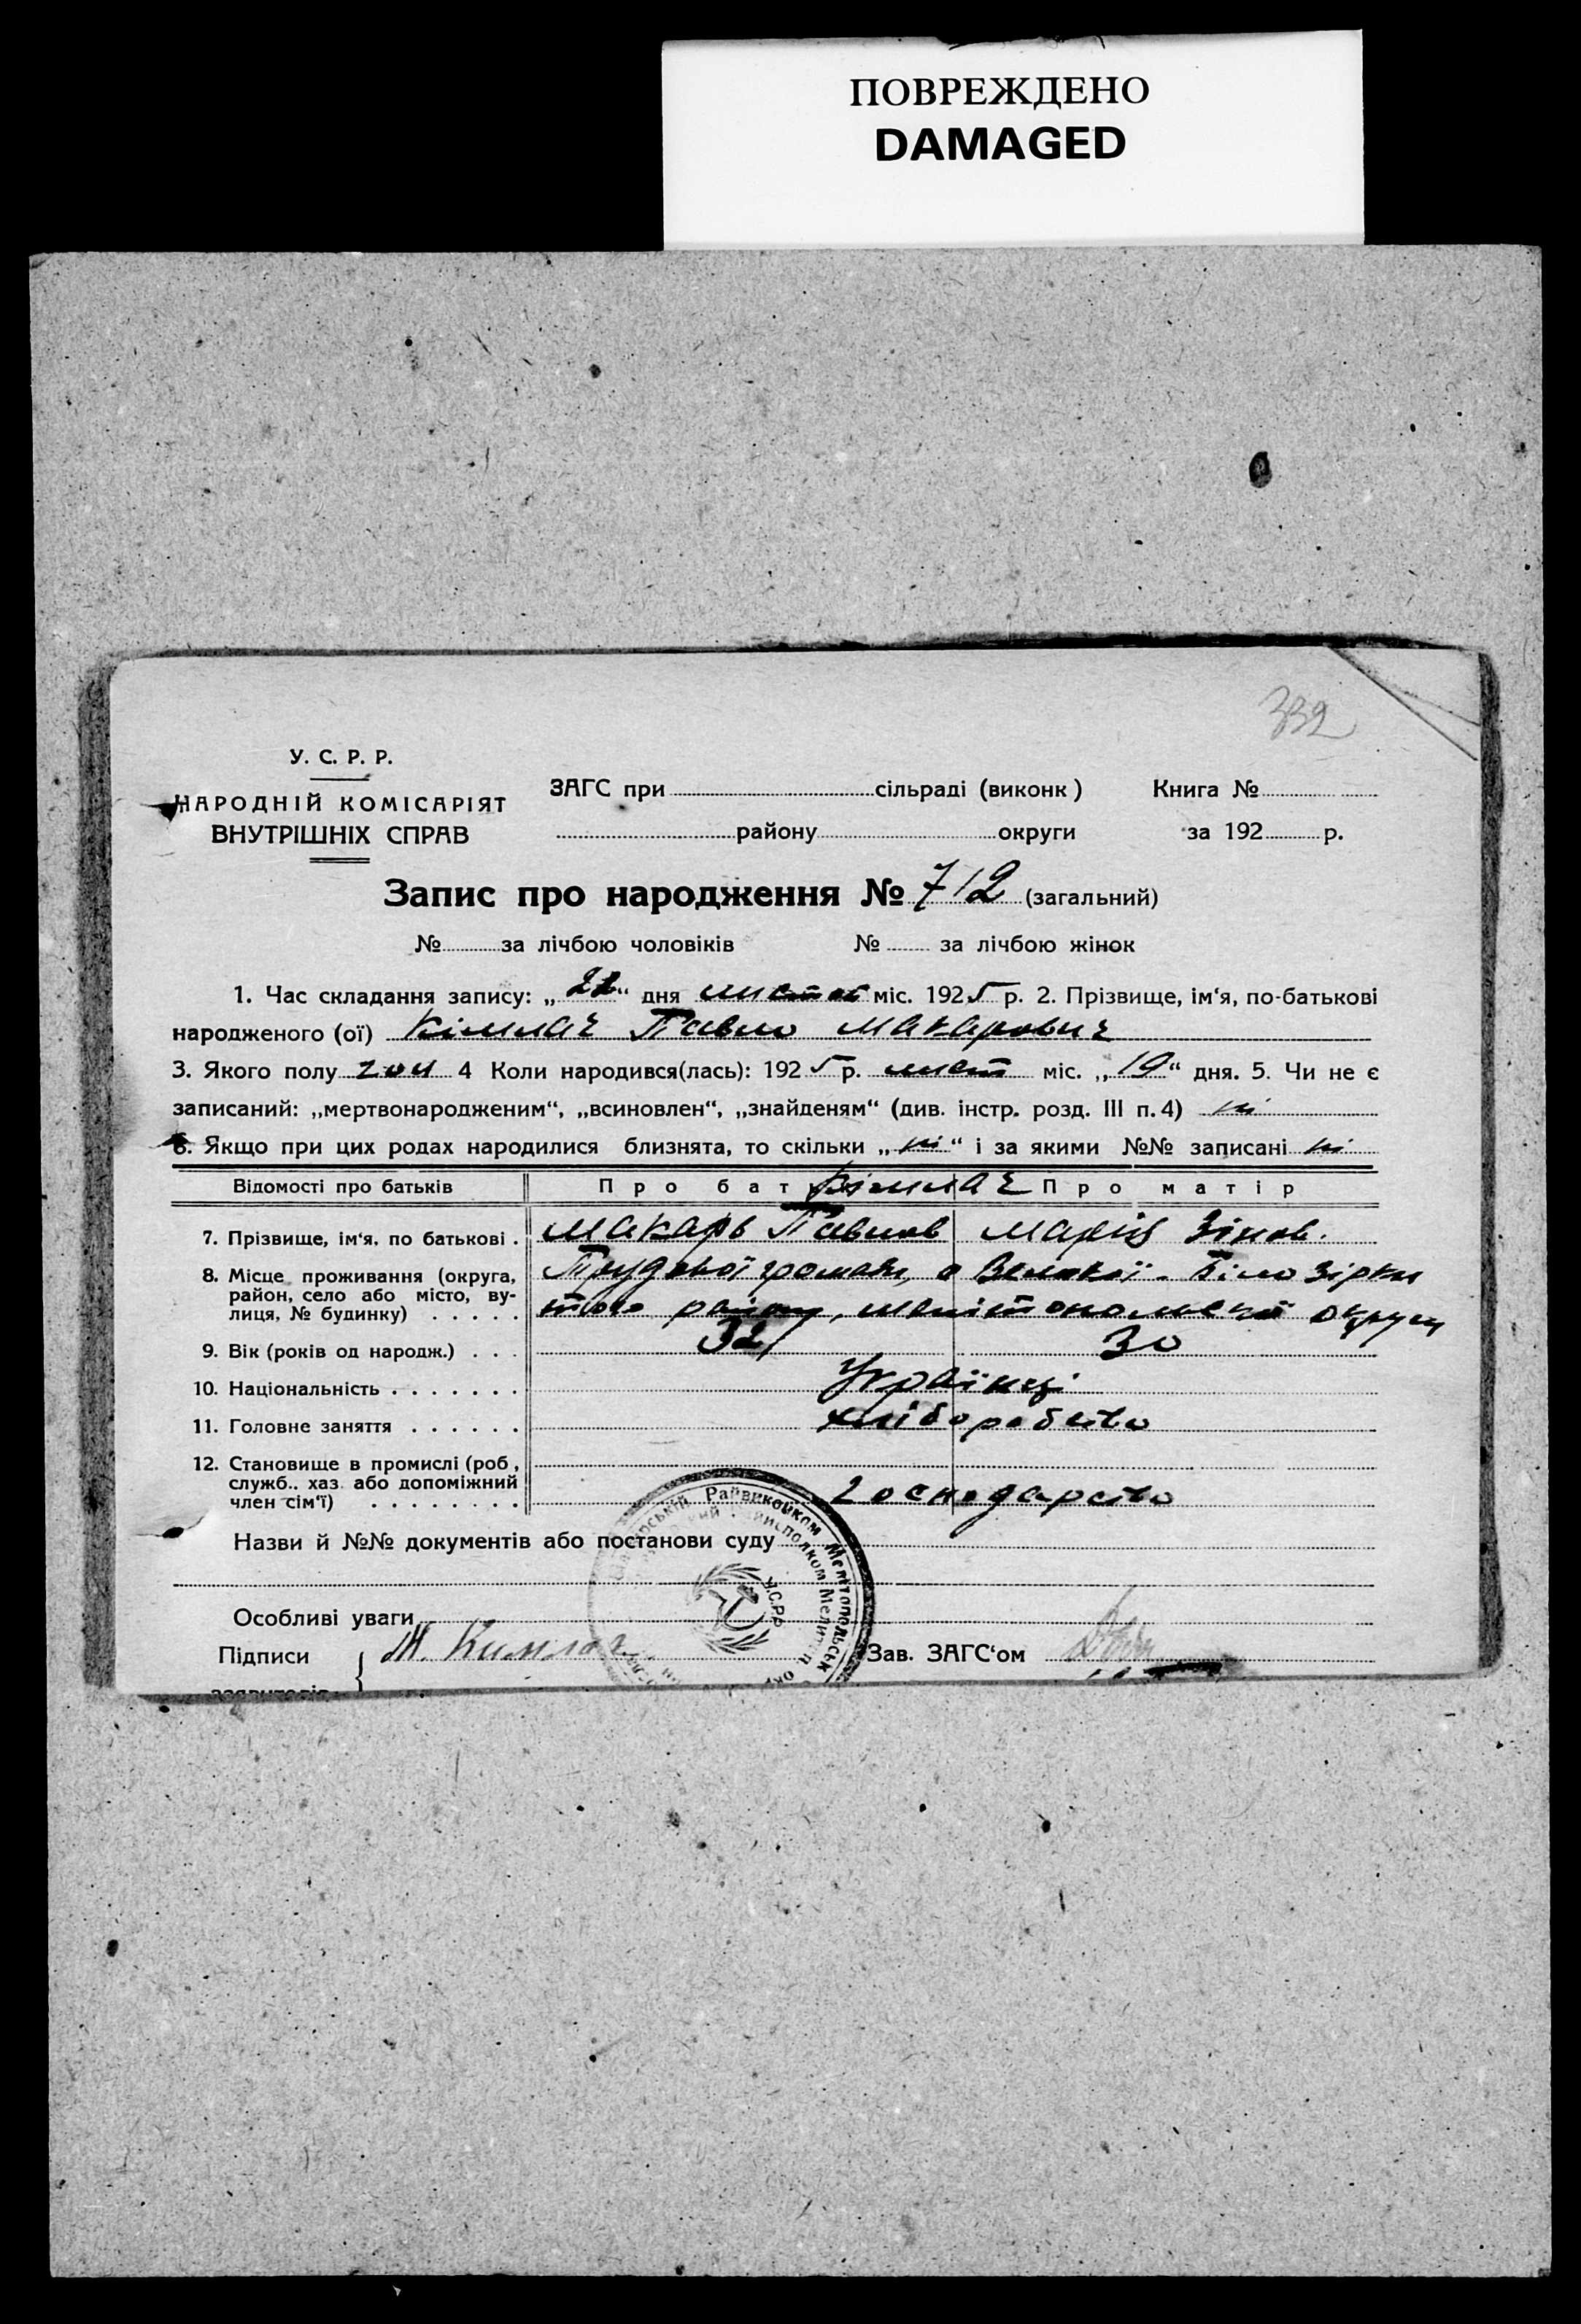 ПОВРЕЖДЕНО
DAMAGED
332
У. С. Р. Р.
НАРОДНІЙ КОМІСАРІЯТ
ВНУТРІШНІХ СПРАВ
ЗАГС при сільраді (виконк) Книга №
району округи за 192 р.
Запис про народження № 712 (загальний)
№ за лічбою чоловіків № за лічбою жінок
1. Час складання запису: „22“ дня листоп міс. 1925 р. 2. Прізвище, ім'я, по-батькові
народженого (ої) Кімлач Павло Макарович
3. Якого полу чол 4 Коли народився(лась): 1925 р. лист міс. „19“ дня. 5. Чи не є
записаний: „мертвонародженим“, „всиновлен“, „знайденям“ (див. інстр. розд. III п. 4) ні
6. Якщо при цих родах народилися близнята, то скільки „ні“ і за якими №№ записані ні
Відомості про батьків Про бат Кімлач Про матір
7. Прізвище, ім'я, по батькові . Макарь Павлов Марія Зінов.
8. Місце проживання (округа, район, село або місто, вулиця, № будинку) . . . . . Трудової громади, с Великої - Білозірки
того району, мелітопольської округи
9. Вік (років од народж.) . . . 32 30
10. Національність . . . . . . . Українці
11. Головне заняття . . . . . . хліборобство
12. Становище в промислі (роб, служб.. хаз або допоміжний член сім'ї) . . . . . . . . господарство
Назви й №№ документів або постанови суду
Райвиконком Мелітопольськ
У.С.Р.Р.
Особливі уваги
Підписи М. Кимлач Зав. ЗАГС'ом
заявителів